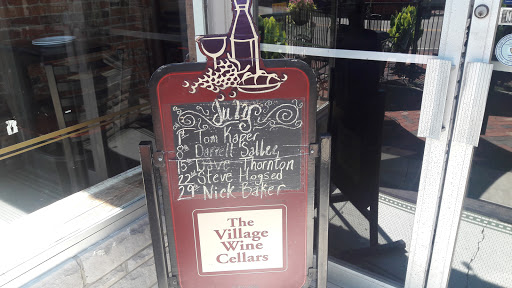 July
1st Tom Kaper
8th Darrell Salbee
15th Dave Thornton
22nd Steve Hogsed
29th Nick Baker
The
Village
Wine
Cellars